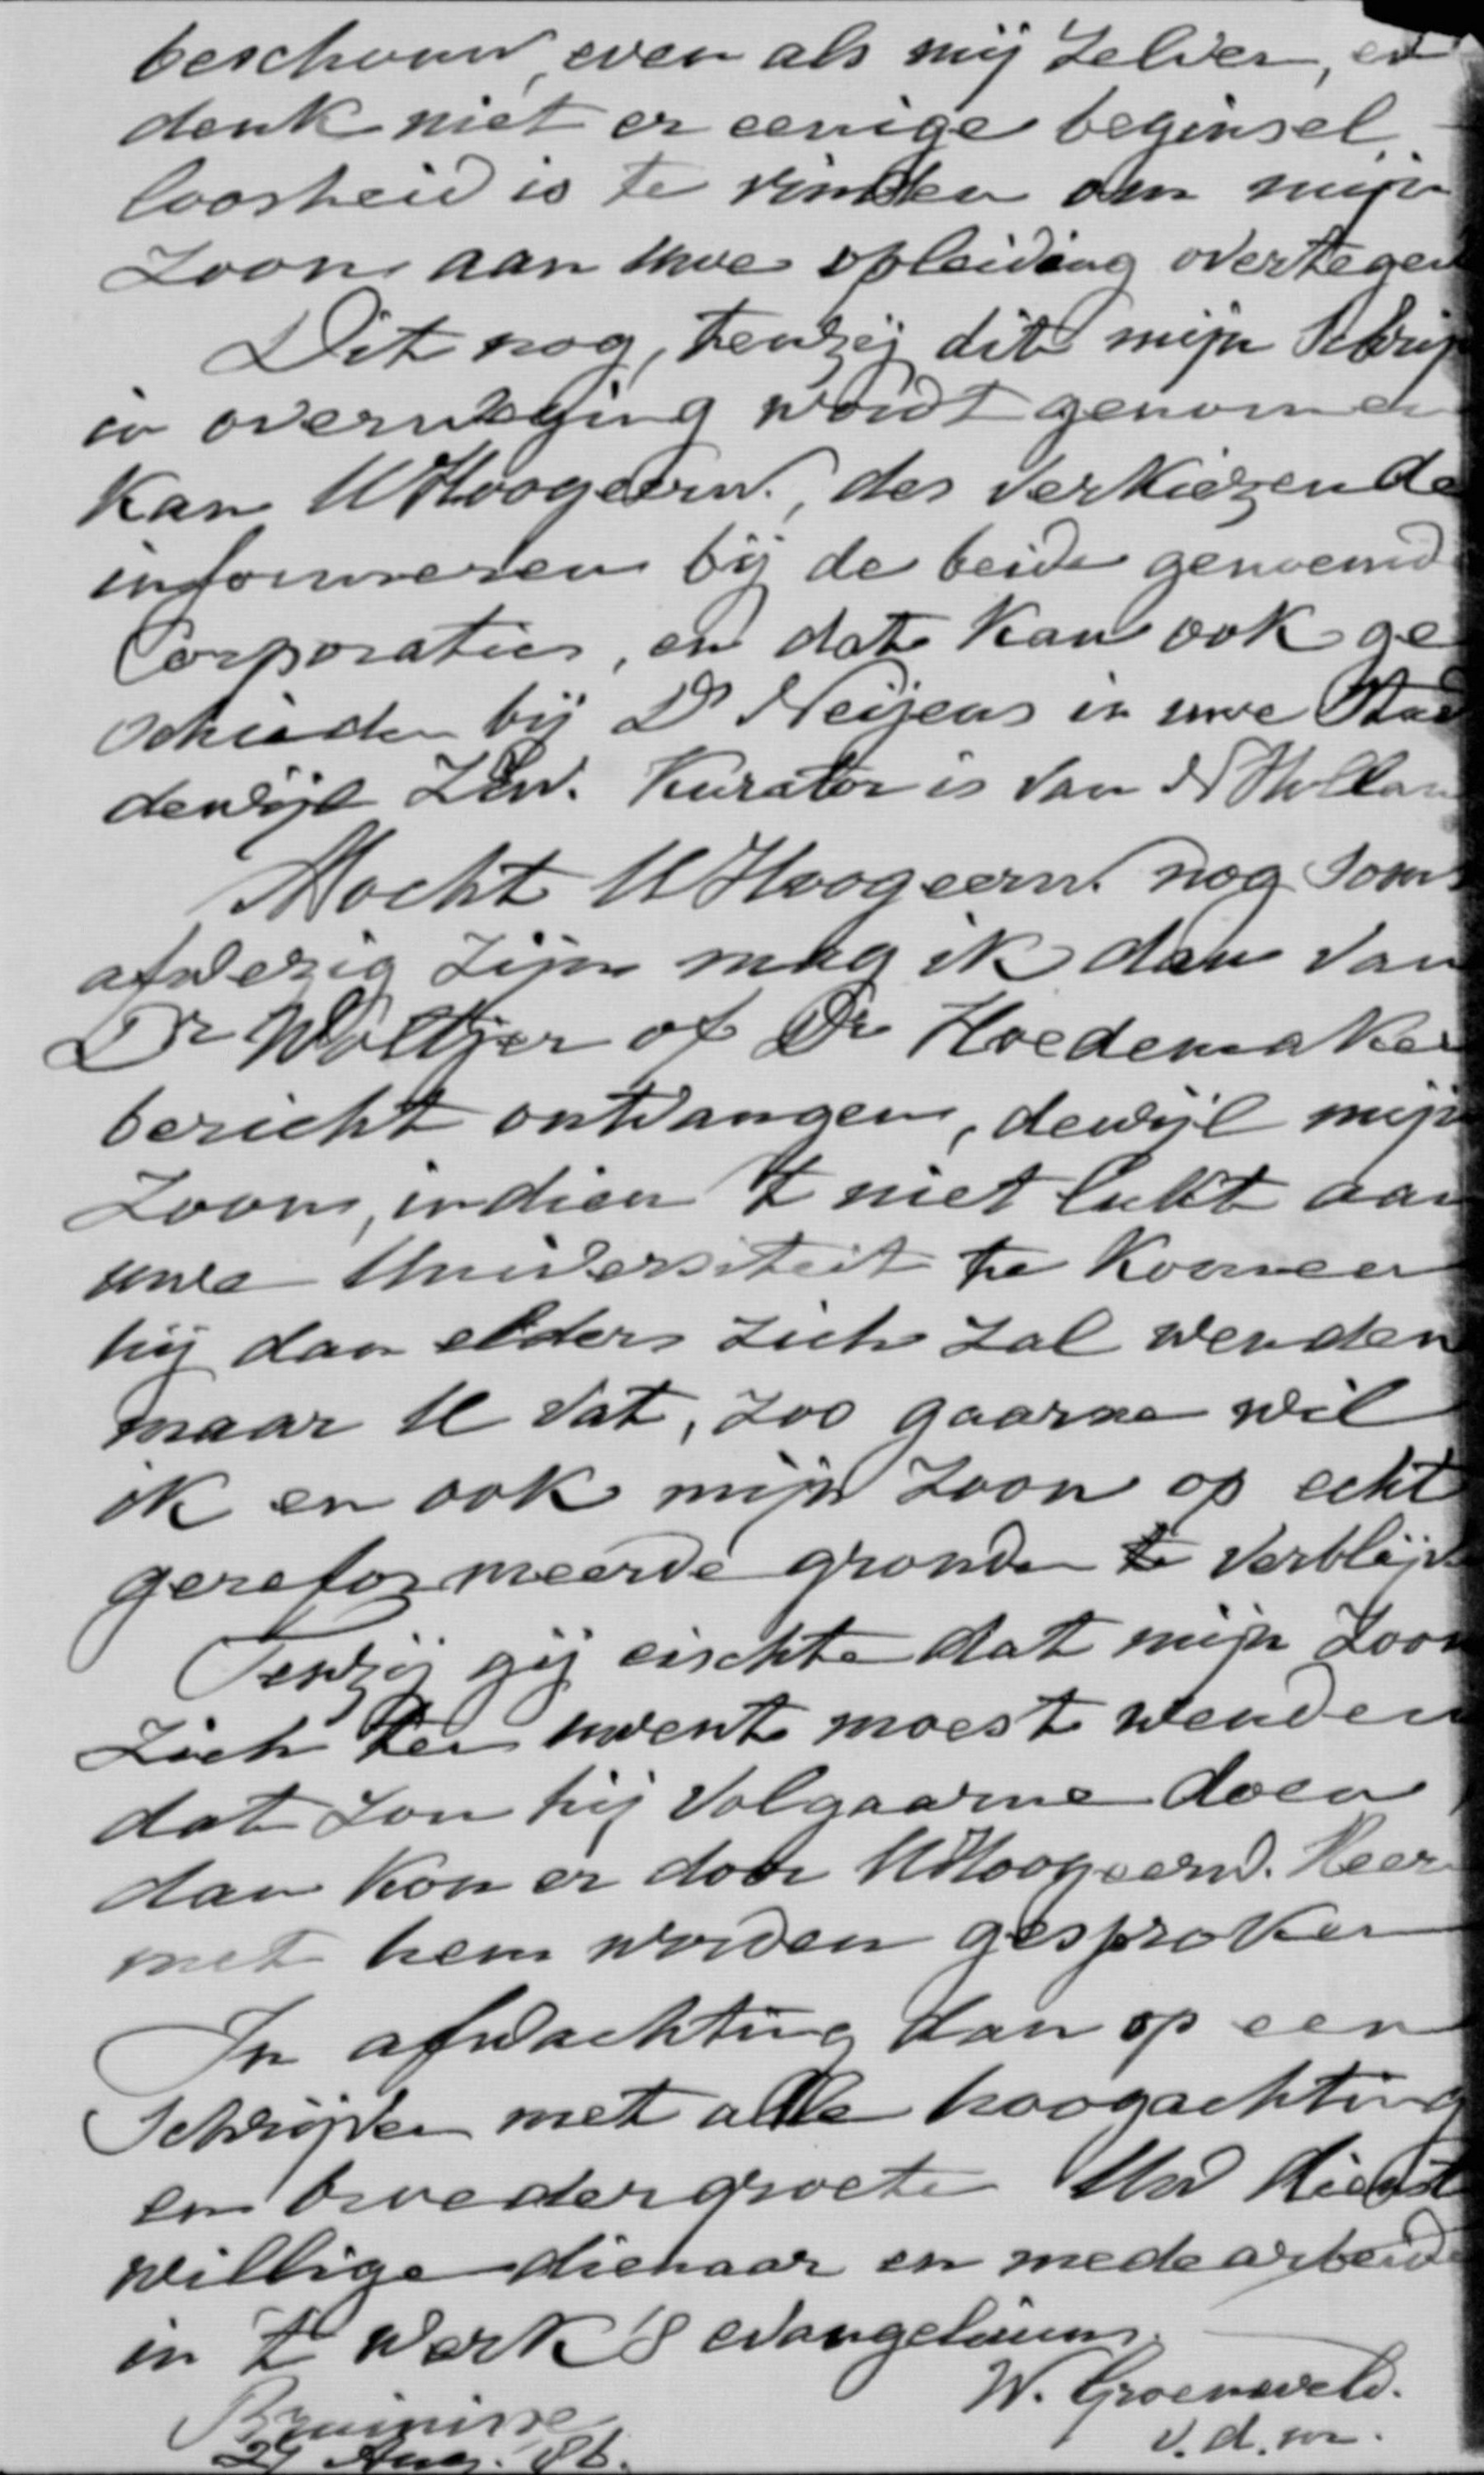 beschouw, even als mij zelven, en
denk niet er eenige beginsel
loosheid is te vinden om mijn
zoon aan uwe opleiding overtegev
Dit nog, tenzij dit mijn schrijv
in overweging wordt genomen
kan UHoogeerw., des verkiezende
informeren bij de beide genoemd
Corporaties, en dat kan ook ge
schieden bij Ds Neijens in uwe Stad
dewijl ZEw. Kurator is van N Hollan
Mocht UHoogeerw. nog soms
afwezig zijn mag ik dan van
Dr Woltjer of Dr Hoedemaker
bericht ontvangen, dewijl mijn
zoon, indien 't niet lukt aan
uwe Universiteit te komen
hij dan elders zich zal wenden
maar U vat, zoo gaarne wil
ik en ook mijn zoon op echt
gereformeerde gronden te verblijv
Tenzij gij eischte dat mijn zoon
zich ten uwent moest wenden
dat zou hij volgaarne doen
dan kon er door UHoogeerw. Heer
met hem worden gesproken
In afwachting dan op een
schrijven met alle hoogachting
en broedergroete Uw dienst
willige dienaar en medearbeide
in 't werk 's evangeliums.
W. Groeneveld.
v.d.m.
Bruinisse
27 Aug. '86.